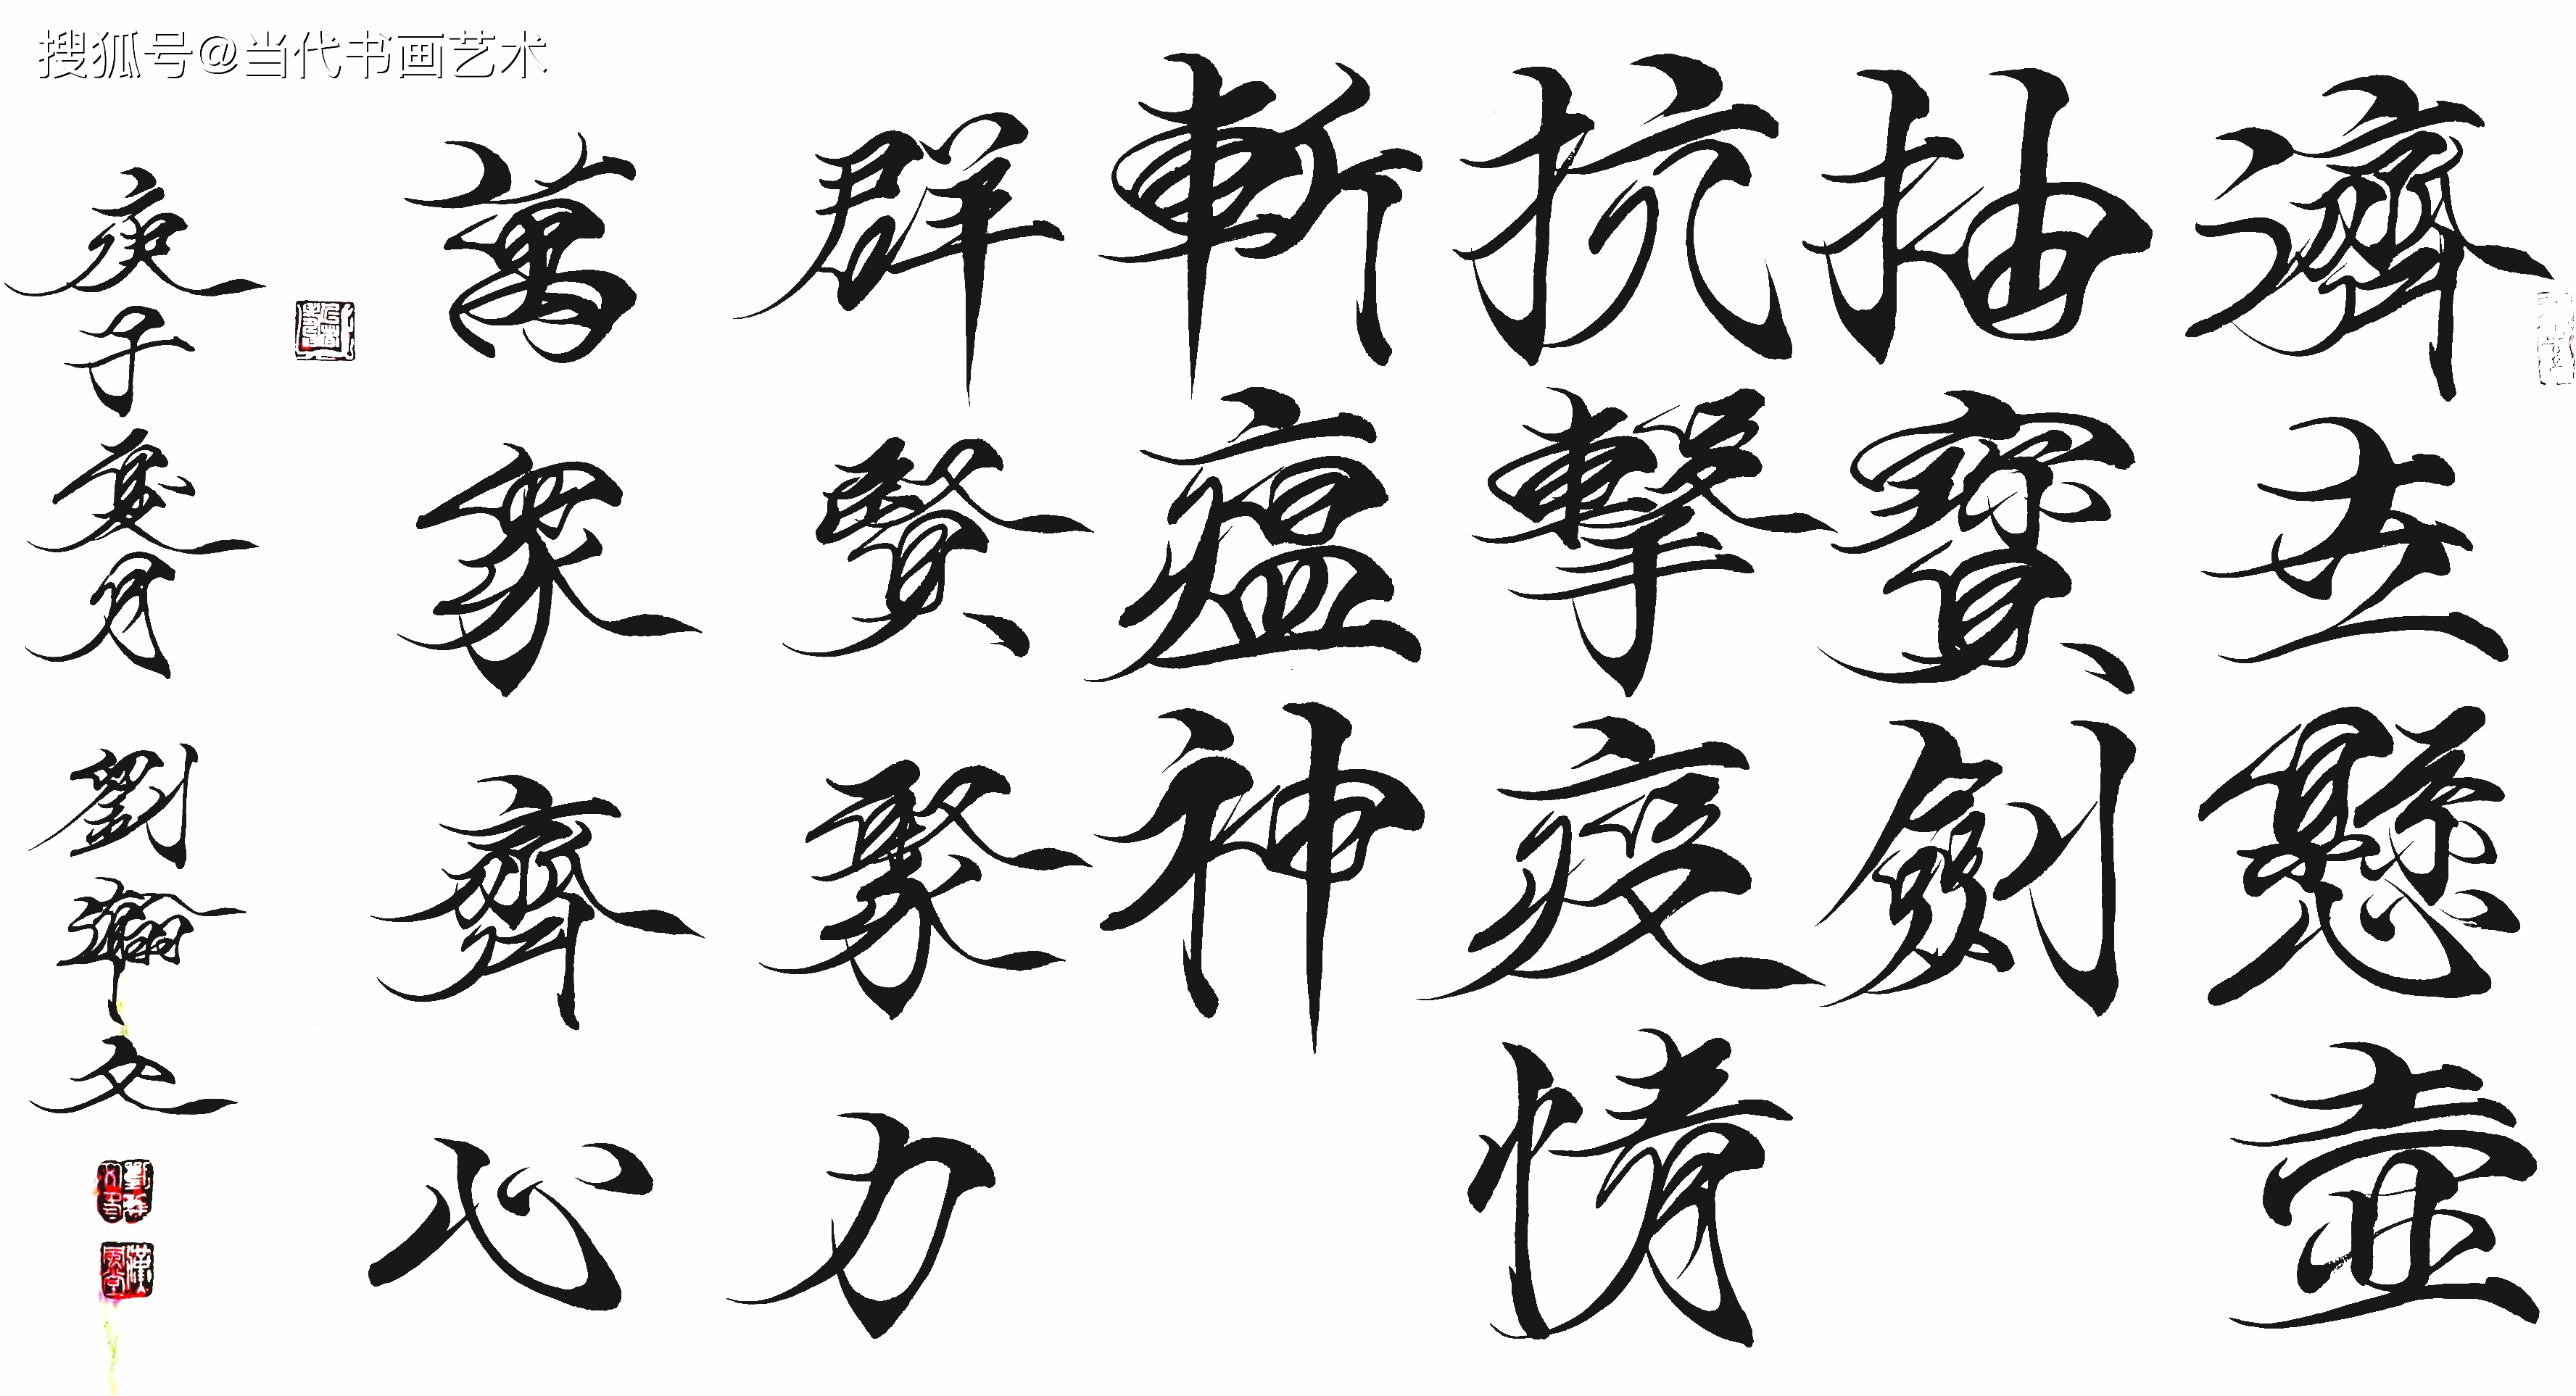 搜狐号@当代书画艺术
濟世懸壺
抽寶劍
抗擊疫情
斬瘟神
群賢聚力
萬眾齊心
庚子夏月 劉瀚文